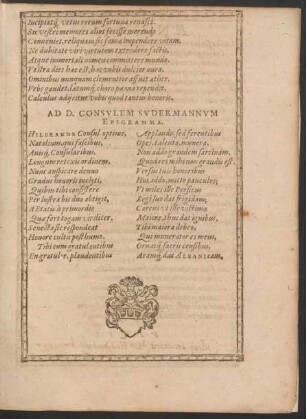 Incipiatq́; vetus rerum fortuna renasci.
Sic vestri memores alios fecisse merendo
Conuenit, reliquam sic fama impendere vitam.
Ne dubitate viri virtutem extendere factis,
Atque immortali nomen committere mundo.
Vestra dies hæc est, hæc vobis dulcior aura.
Omnibus numquam clementior affuit astris.
Vrbs gaudet.
Calculus adijcitur vobis quod tantus honoris.
AD D. CONSVLEM SVDERMANNVM
EPIGRAMMA.
HILBRANDE Consul optime,
Natalium, qui fascibus,
Auitq́; Consularibus,
Longum retexis ordinem.
Nunc auspicato denuo
Gradus honoris inclyti,
Quibus tibi consistere
Per lustra bis duo obtigit,
Ætatis à primordio
Qua fert togam viriliter.
Senectæ sic respondeat
Honore culta posthumo.
Tibi cum gratulantibus
Et gratulor, plaudentibus
Applaudo: sed ferentibus
Opes, talenta, munera,
Non addo grandem sarcinam.
Quod res mihi non grandis est.
Versus tuis honoribus
Hos addo, multo pauculos;
Vt miles ille Persicus
Regi sur dat frigidam;
Cereris vt ille victima
Maiore, thus dat ignibus,
Tibi maiora debeo,
Qui moneraris meus,
Ornasq́; sacris censibus,
Aramq́; das ALBANIEAM.